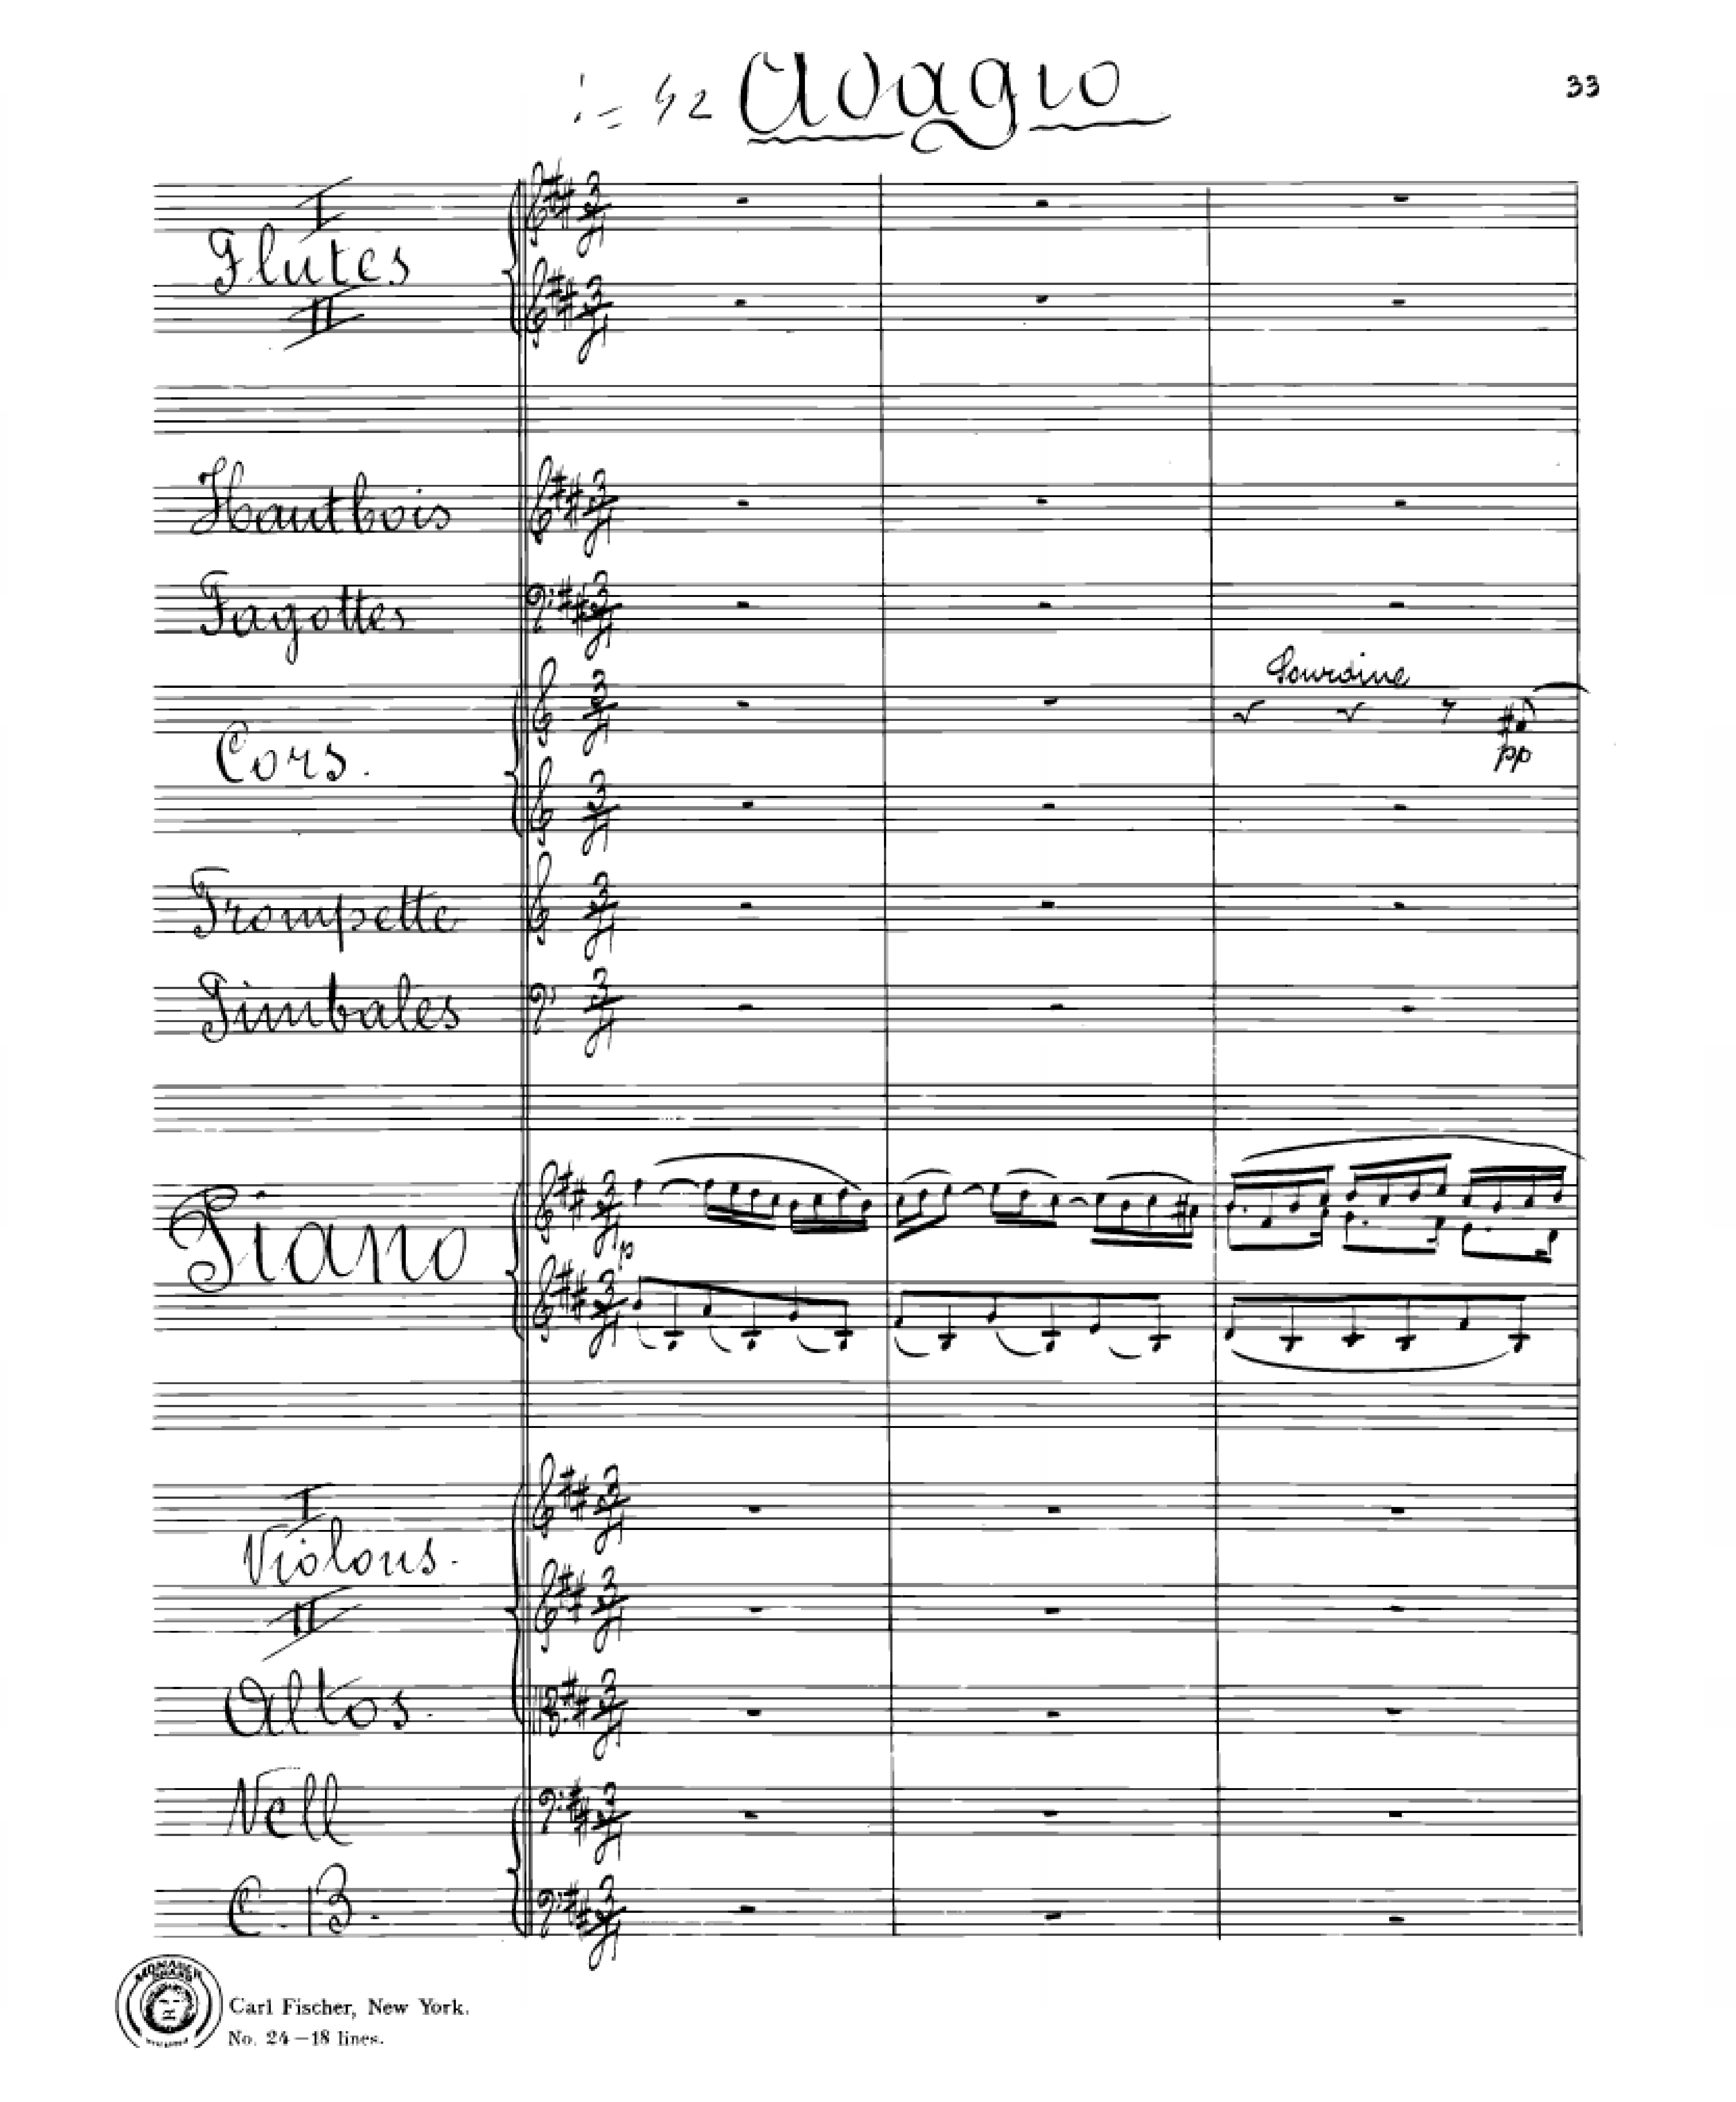 = 52 Adagio
33
I
Flutes
II
Hautbois
Fagottes
Sourdine
pp
Cors.
Trompette
Timbales
Piano
p
I
Violons.
II
Altos.
Vcll
C.B.
Carl Fischer, New York.
No. 24–18 lines.